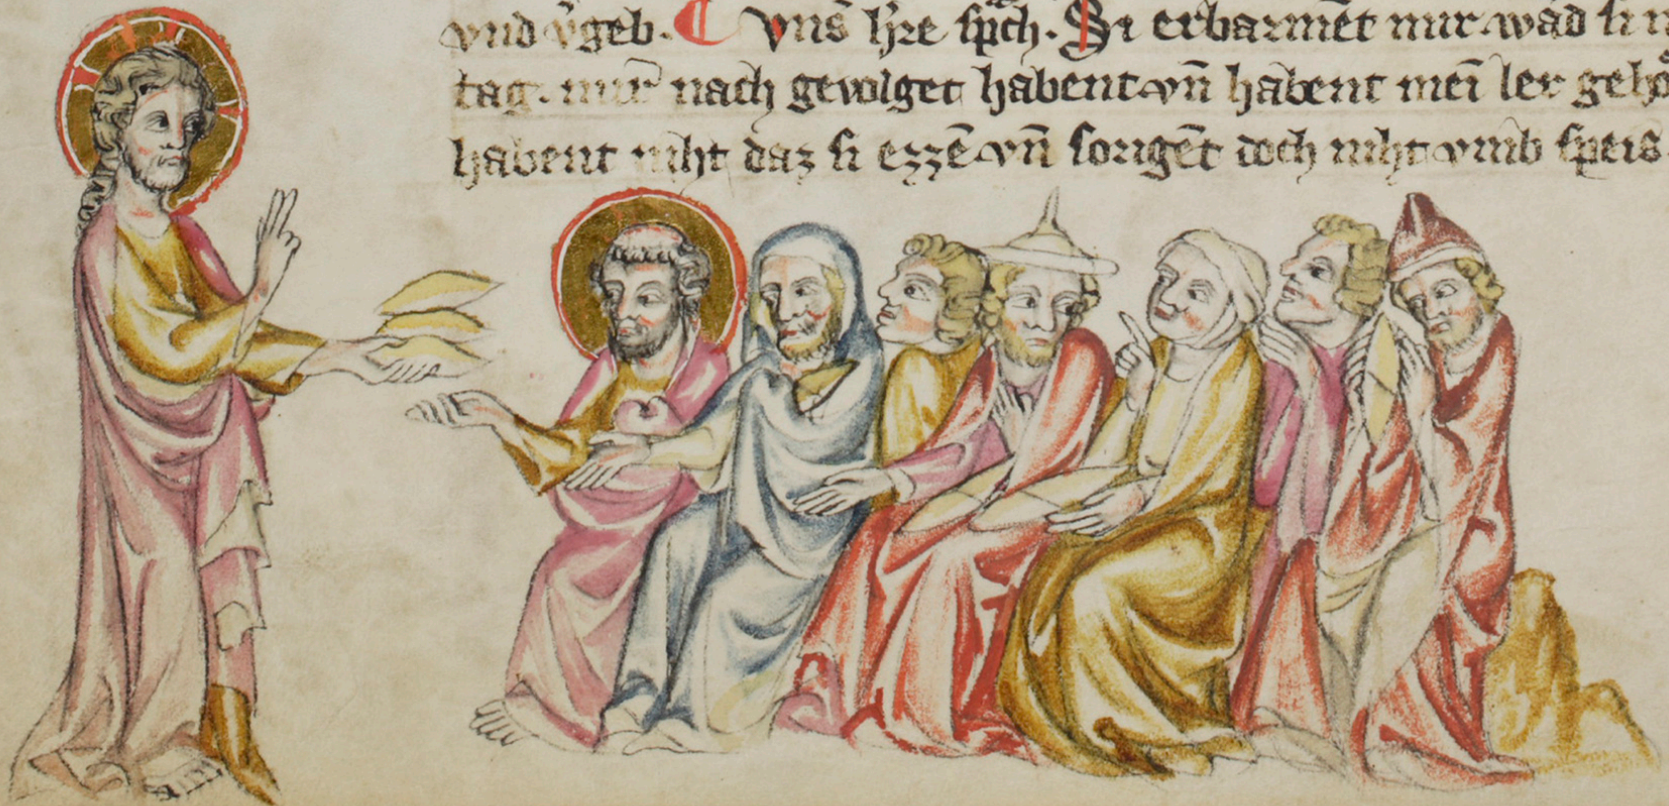 vnd v̓geb. ¶ Vns̄ h̓re sp̄ch. Si erbarmēt mir wād si
tag. mir nach gevolget habent vn̄ habent mei ler geho
habent niht daz si ezzē vn̄ sorigēt doch niht vmb speis.